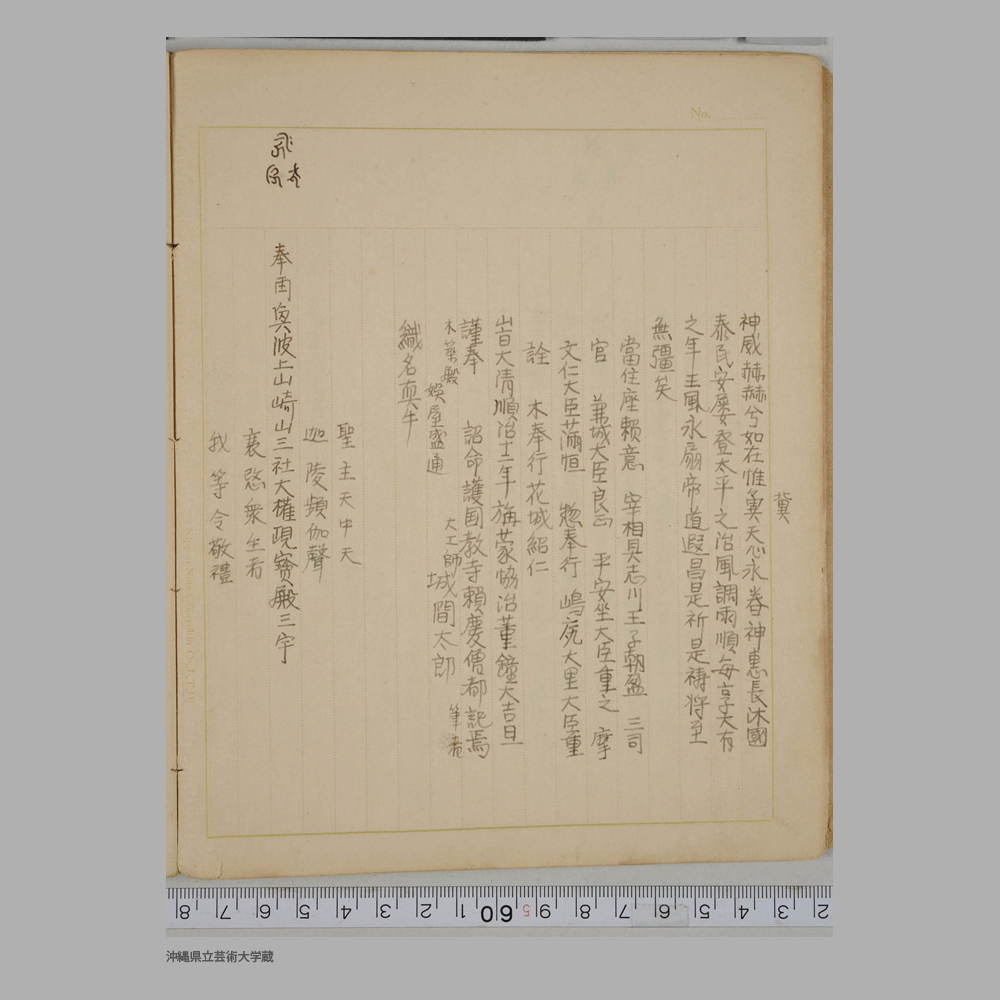 No.
冀
神威赫赫兮如在惟冀天心永眷神恵長沐國
泰民安屡登太平之治風調雨順毎享大有
之年王風永扇帝道遐昌是祈是祷将至
無彊矣
當住座頼意 宰相具志川王子朝盈 三司
官 兼城大臣良 平安坐大臣重之 摩
文仁大臣 恒 惣奉行 嶋尻大里大臣重
詮 木奉行花城紹仁
旹大清順治 年 蒙協洽菫鐘大吉旦
謹奉 詔命護国教寺頼慶僧都記焉
木築殿 娯屋盛通 大工師城間太郎 筆者
織名真牛
聖主天中天
迦陵頻伽聲
奉 波上山崎山三社大権現寳殿三宇
哀愍衆生者
我等今敬禮
8 7 6 5 4 3 2 1 60 9 8 7 6 5 4 3 2
沖縄県立芸術大学蔵